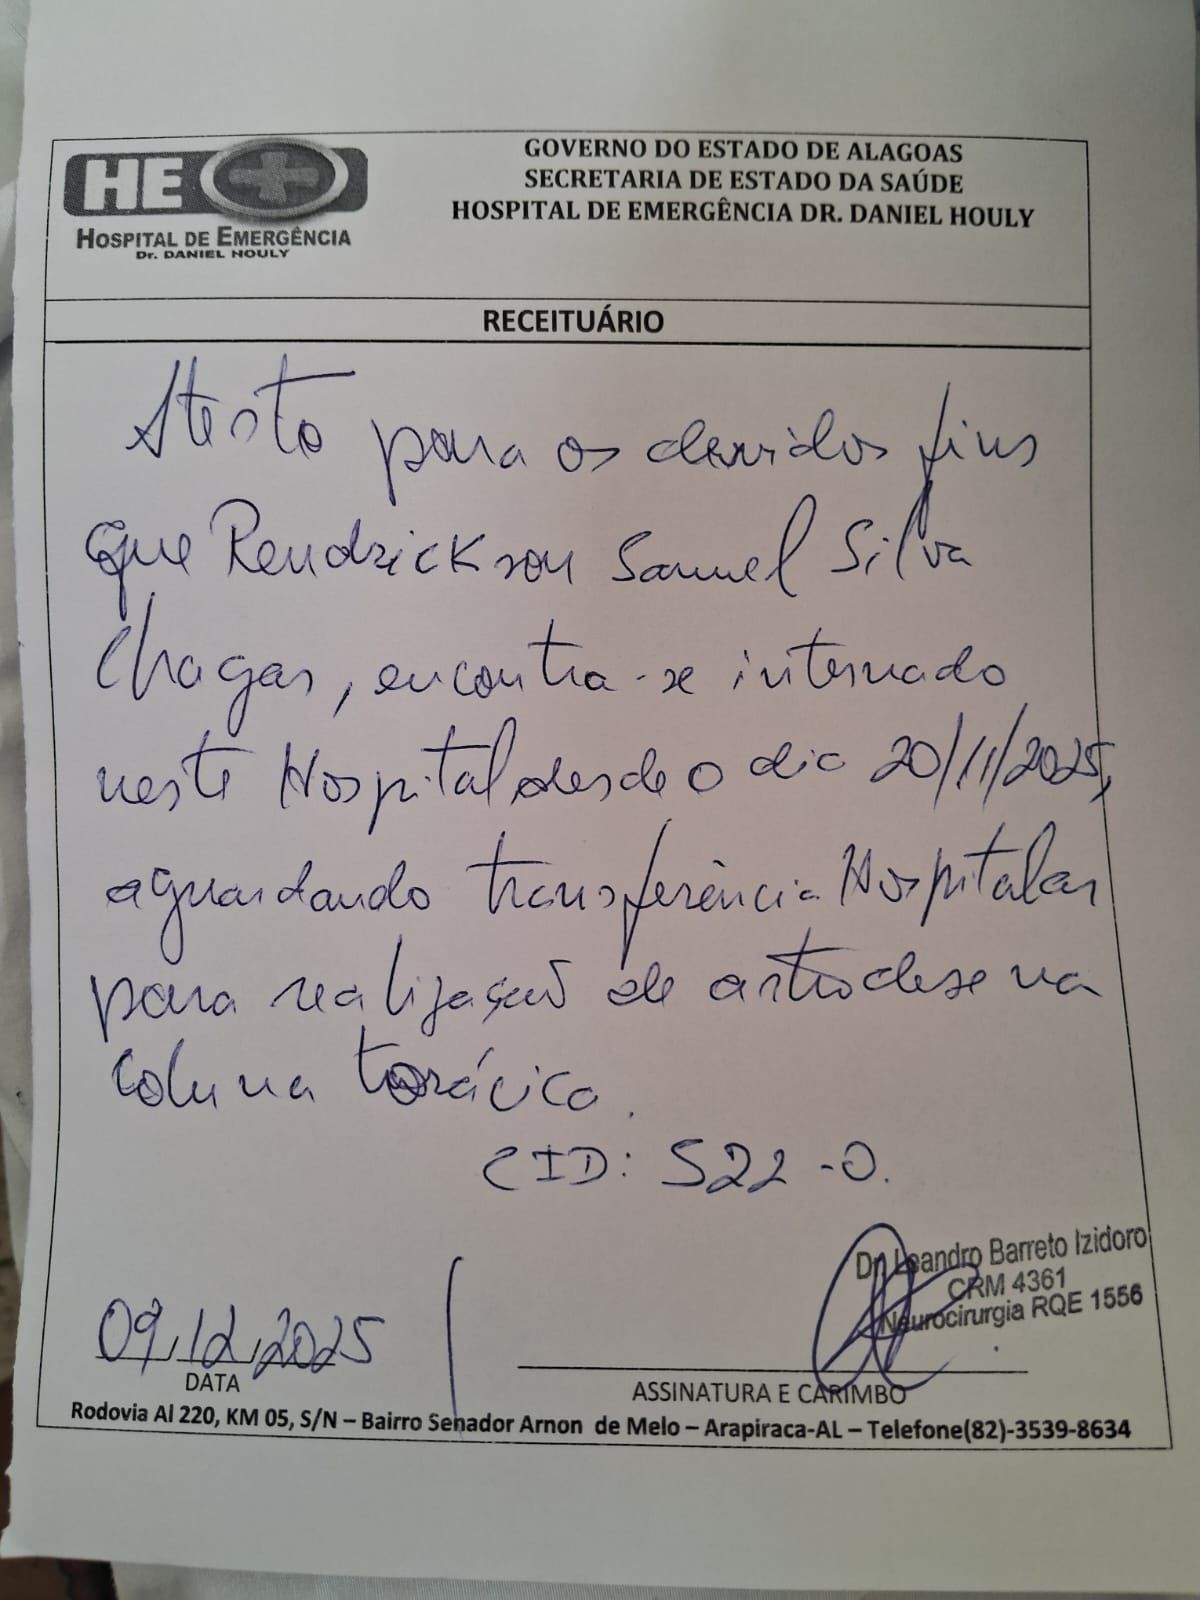 HE
HOSPITAL DE EMERGÊNCIA
Dr. DANIEL HOULY
GOVERNO DO ESTADO DE ALAGOAS
SECRETARIA DE ESTADO DA SAÚDE
HOSPITAL DE EMERGÊNCIA DR. DANIEL HOULY
RECEITUÁRIO
Atesto para os devidos fins
que Rendrickson Samuel Silva
Chagas, encontra-se internado
neste Hospital desde o dia 20/11/2025,
aguardando transferência Hospitalar
para realização de artrodese na
coluna torácica.
CID: S22-0.
Dr. Leandro Barreto Izidoro
CRM 4361
Neurocirurgia RQE 1556
09.12.2025
DATA
ASSINATURA E CARIMBO
Rodovia Al 220, KM 05, S/N – Bairro Senador Arnon de Melo – Arapiraca-AL – Telefone(82)-3539-8634